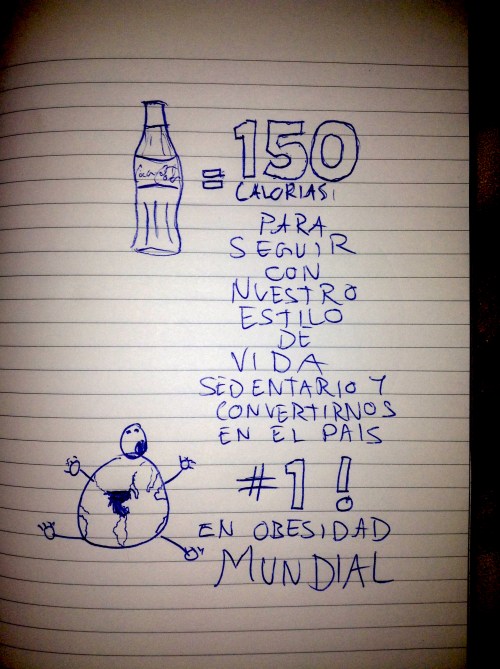 Coca-Cola
= 150
CALORIAS
PARA
SEGUIR
CON
NUESTRO
ESTILO
DE
VIDA
SEDENTARIO Y
CONVERTIRNOS
EN EL PAIS
#1!
EN OBESIDAD
MUNDIAL